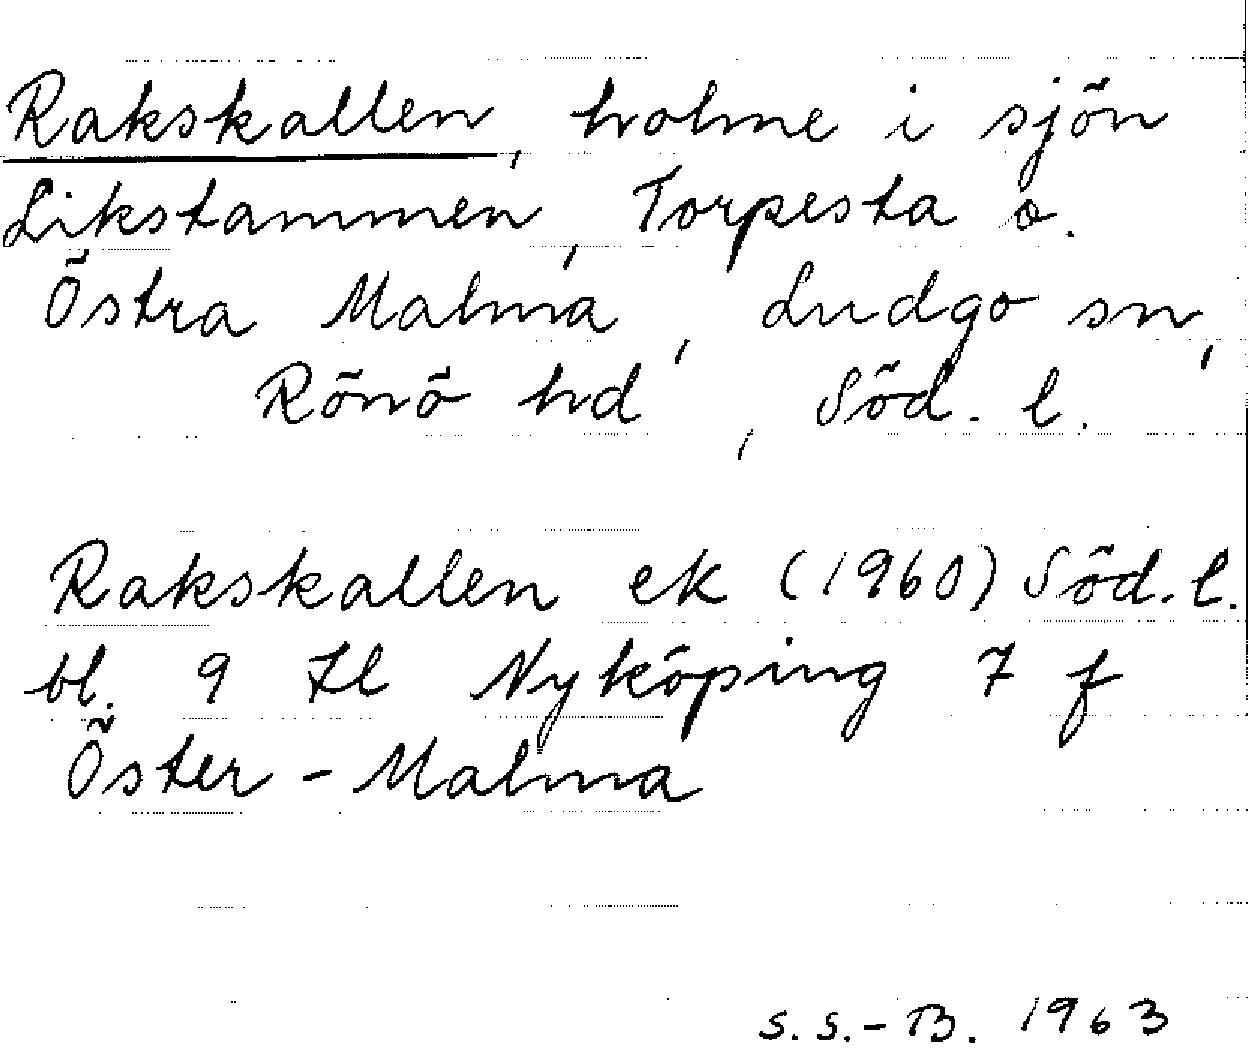 Rakskallen, holme i sjön
Likstammen, Torpesta o.
Östra Malma, Ludgo sn,
Rönö hd, Söd. l.
Rakskallen ek (1960) Söd. l.
bl. 9 II Nyköping 7 f
Öster-Malma
S. S.-B. 1963